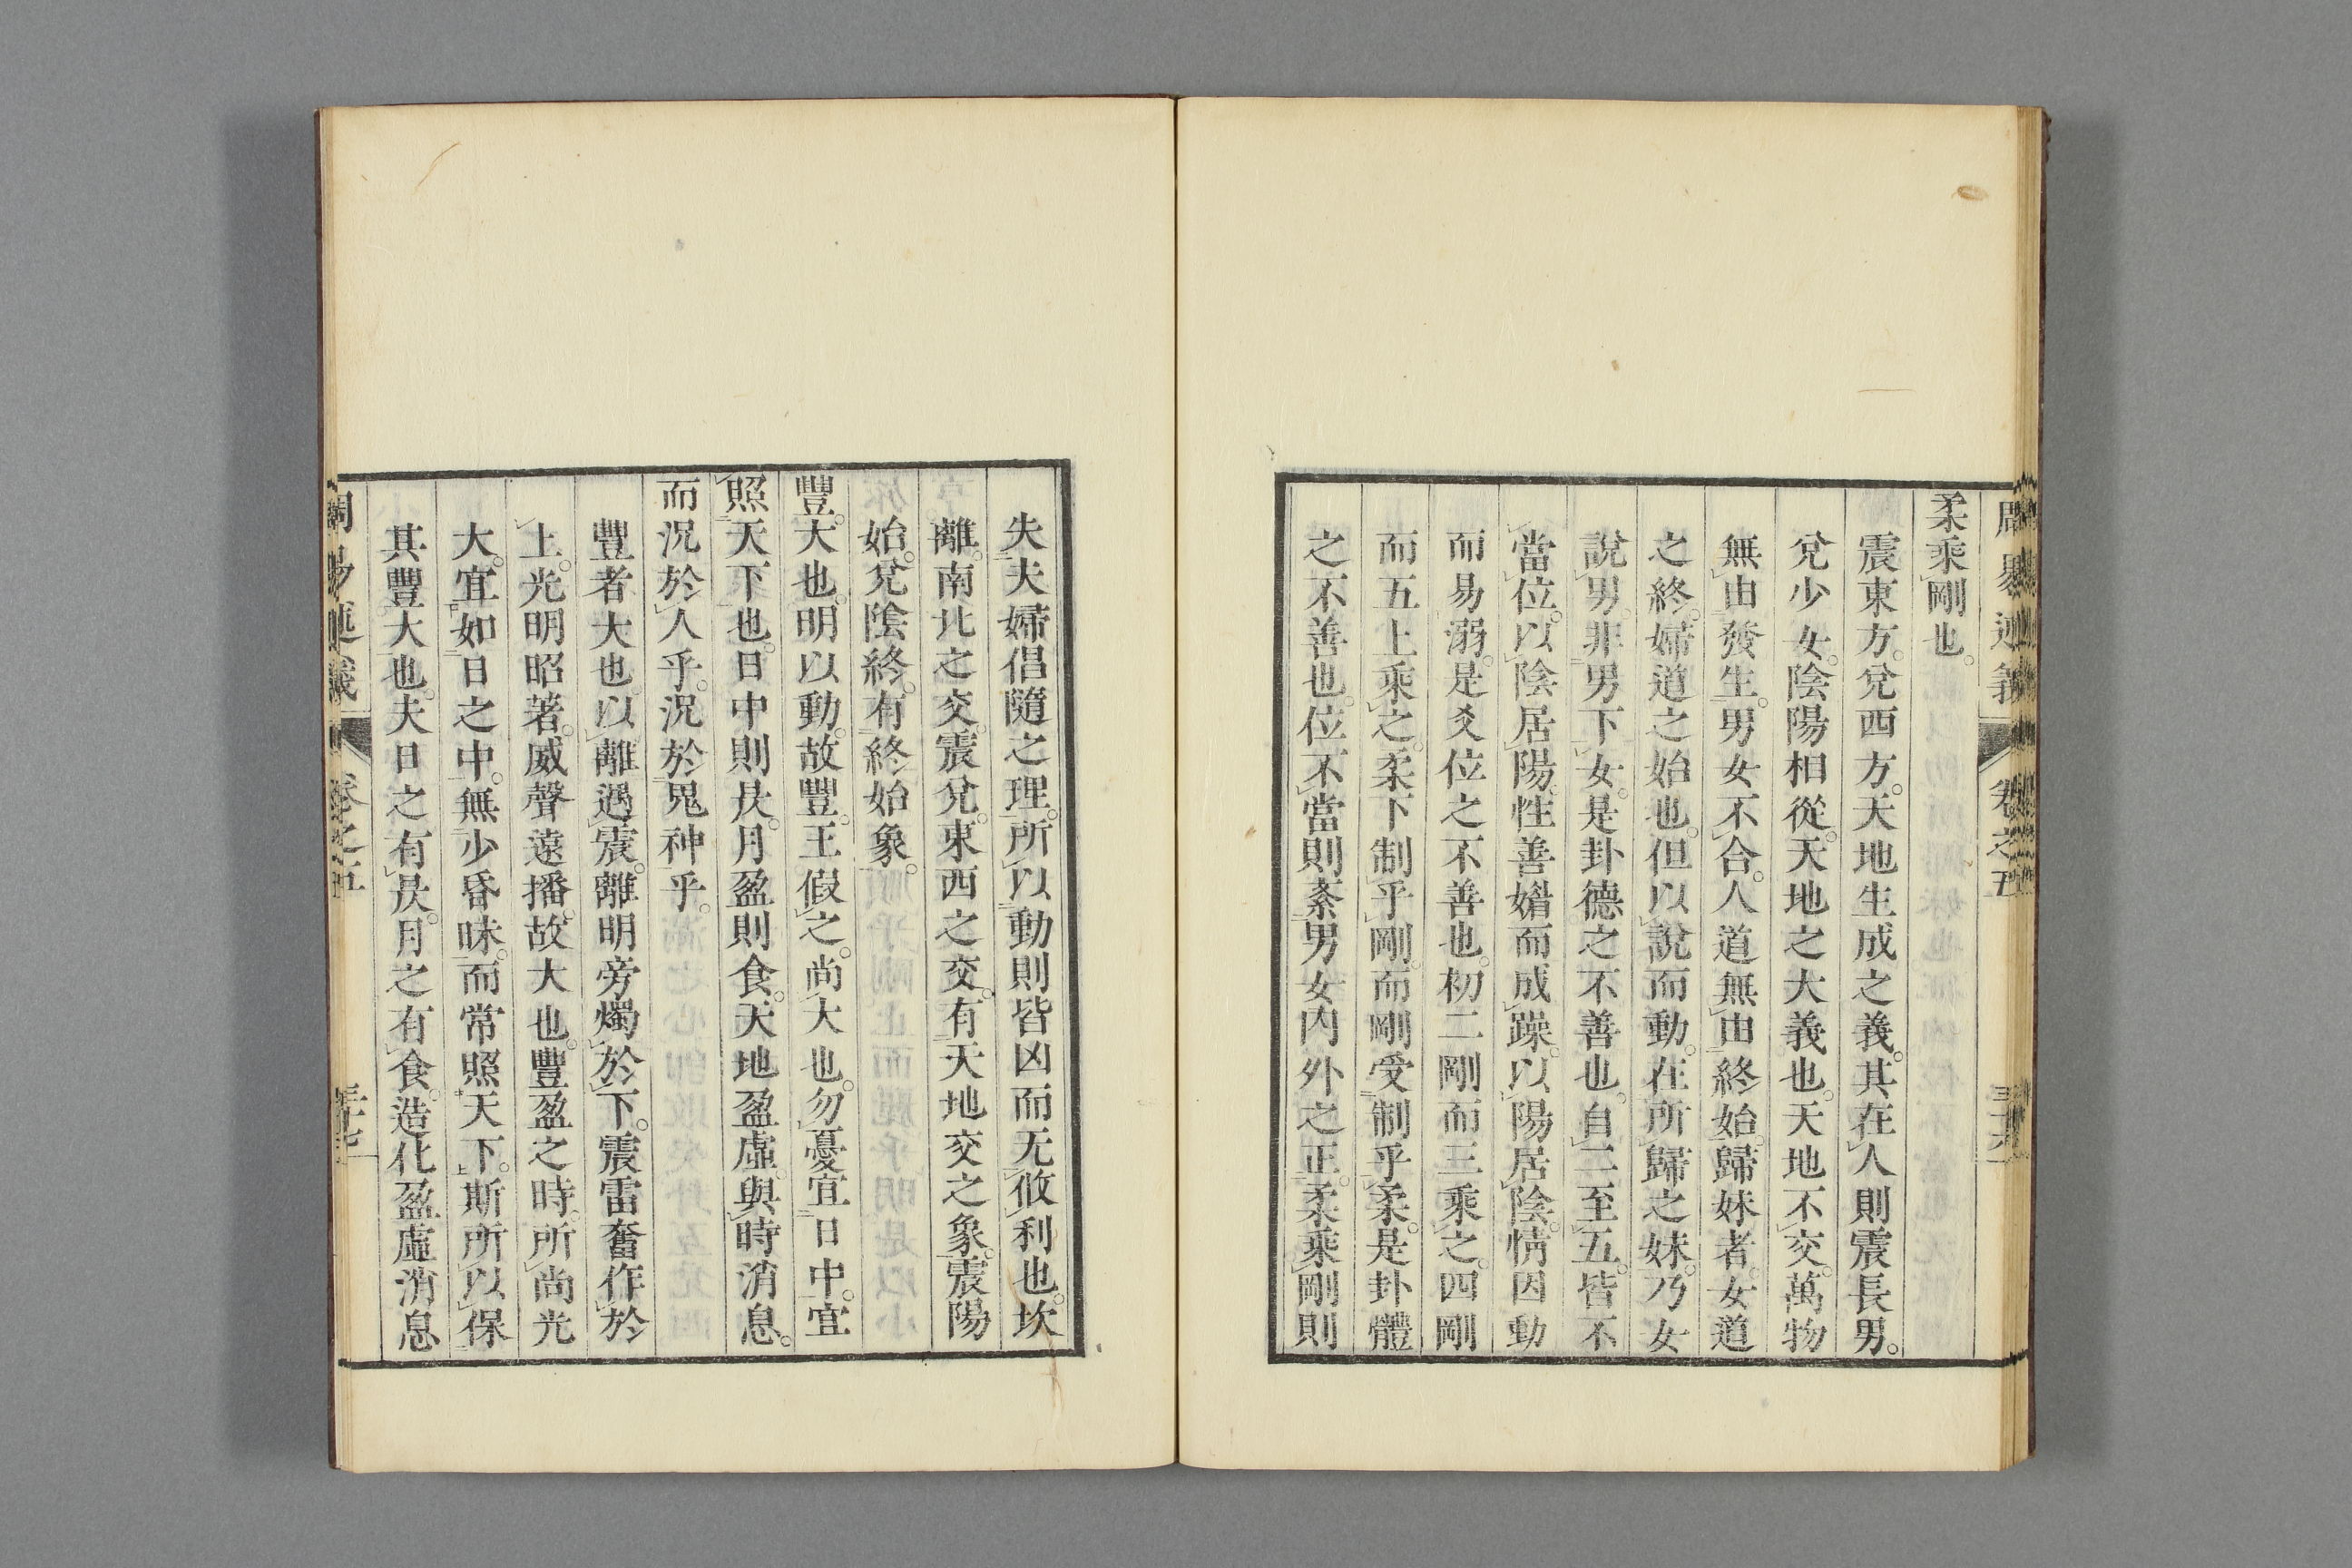 周易述義 卷之五 三十六
柔乘剛也。
震東方。兌西方。天地生成之義。其在人則震長男。
兌少女。陰陽相從。天地之大義也。天地不交。萬物
無由發生。男女不合。人道無由終始。歸妹者。女道
之終。婦道之始也。但以說而動。在所歸之妹。乃女
說男。非男下女。是卦德之不善也。自二至五。皆不
當位。以陰居陽。性善媢而成躁。以陽居陰。情因動
而易溺。是爻位之不善也。初二剛而三乘之。四剛
而五上乘之。柔下制乎剛。而剛受制乎柔。是卦體
之不善也。位不當則紊男女內外之正。柔乘剛則
失夫婦倡隨之理。所以動則皆凶而无攸利也。坎
離。南北之交。震兌。東西之交。有天地交之象。震陽
始。兌陰終。有終始象。
豐。大也。明以動。故豐。王假之。尚大也。勿憂宜日中。宜
照天下也。日中則昃。月盈則食。天地盈虛。與時消息。
而況於人乎。況於鬼神乎。
豐者大也。以離遇震。離明旁燭於下。震雷奮作於
上。光明昭著。威聲遠播。故大也。豐盈之時。所尚光
大。宜如日之中。無少昏昧。而常照天下。斯所以保
其豐大也。夫日之有昃。月之有食。造化盈虛消息
周易述義 卷之五 三十七